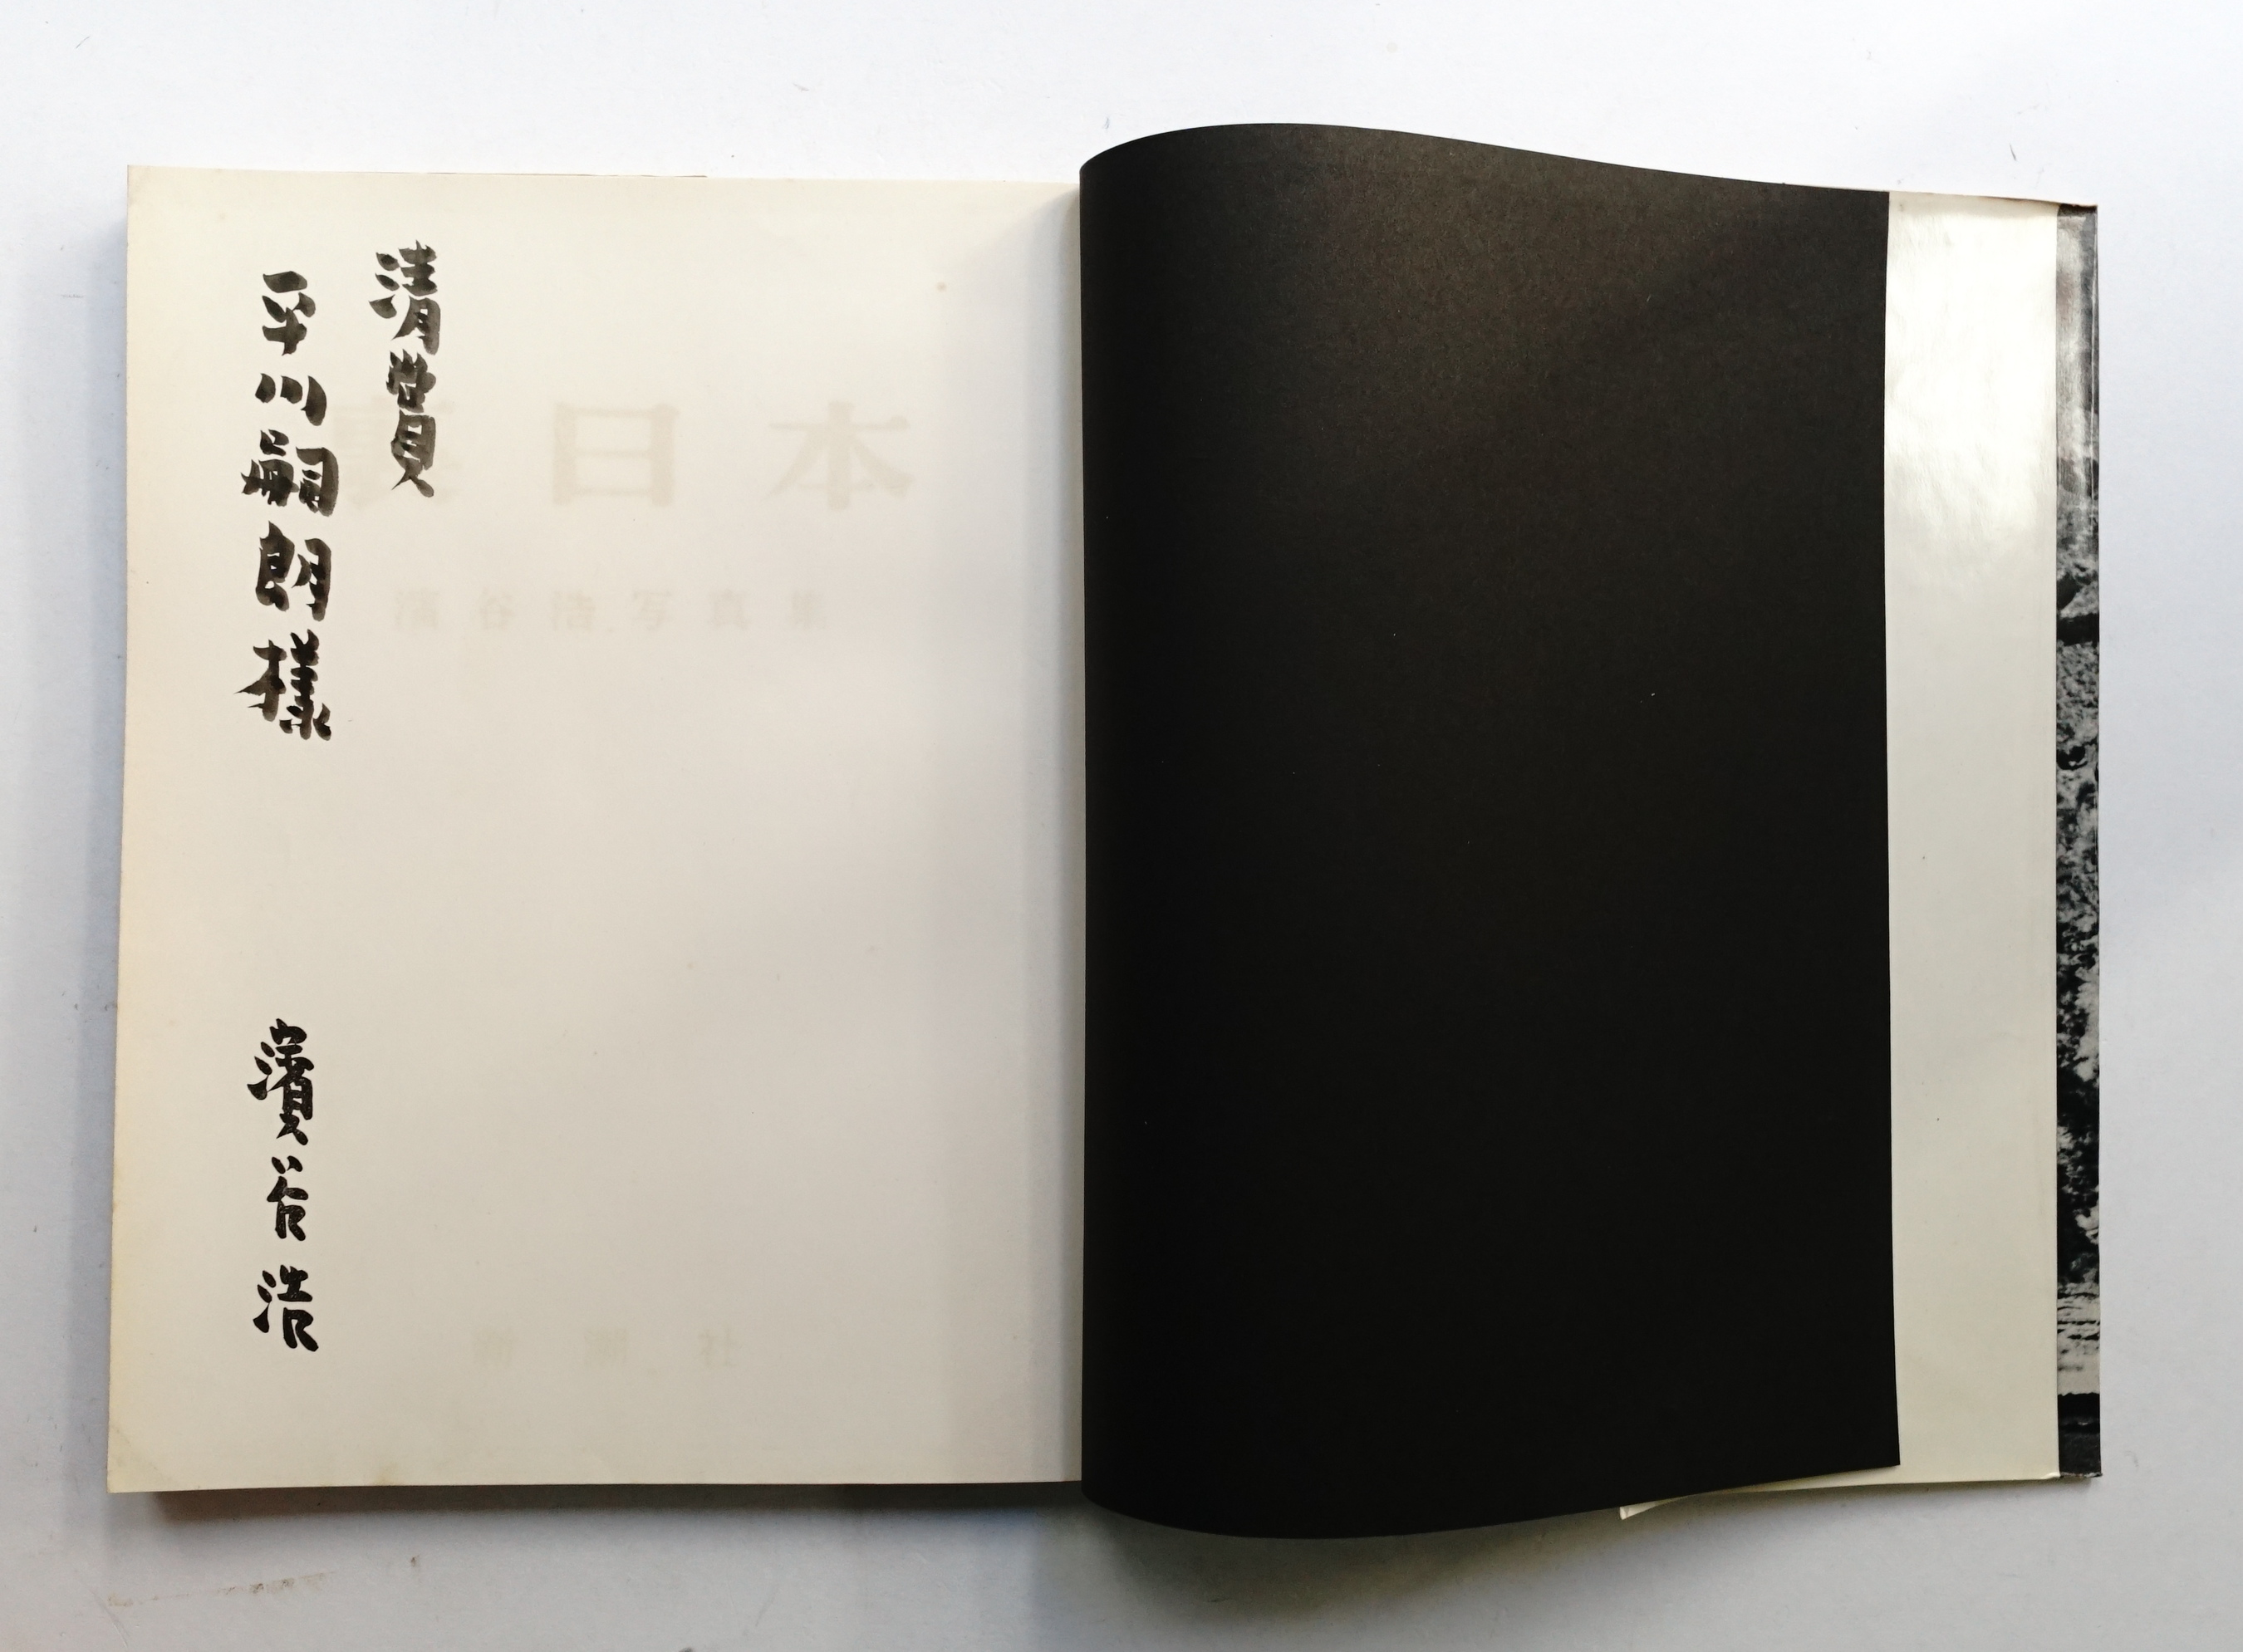 清賞
平川嗣朗様
濱谷浩
裏日本
濱谷浩写真集
新潮社